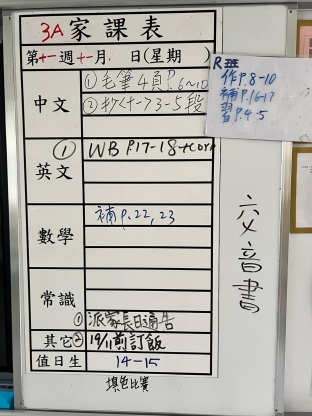 3A家課表
第十一週十一月 日(星期 )
中文
①毛筆4頁P.6~10
②抄<十一>3-5段
英文
① WB P17-18+corr
數學
補P.22,23
常識
① 派家長日通告
其它 ② 19/11前訂飯
值日生 14-15
填色比賽
R班
作P.8-10
補P.16-17
習P.4-5
交音書